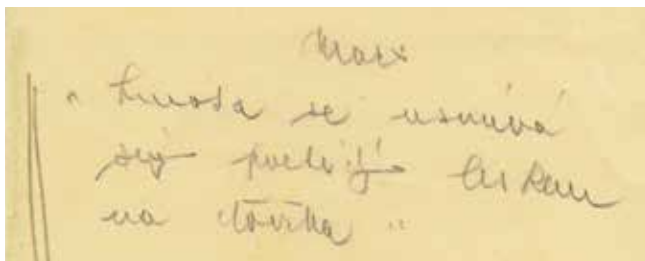 Marx
„hmota se usmívá
svým leskem
na člověka"